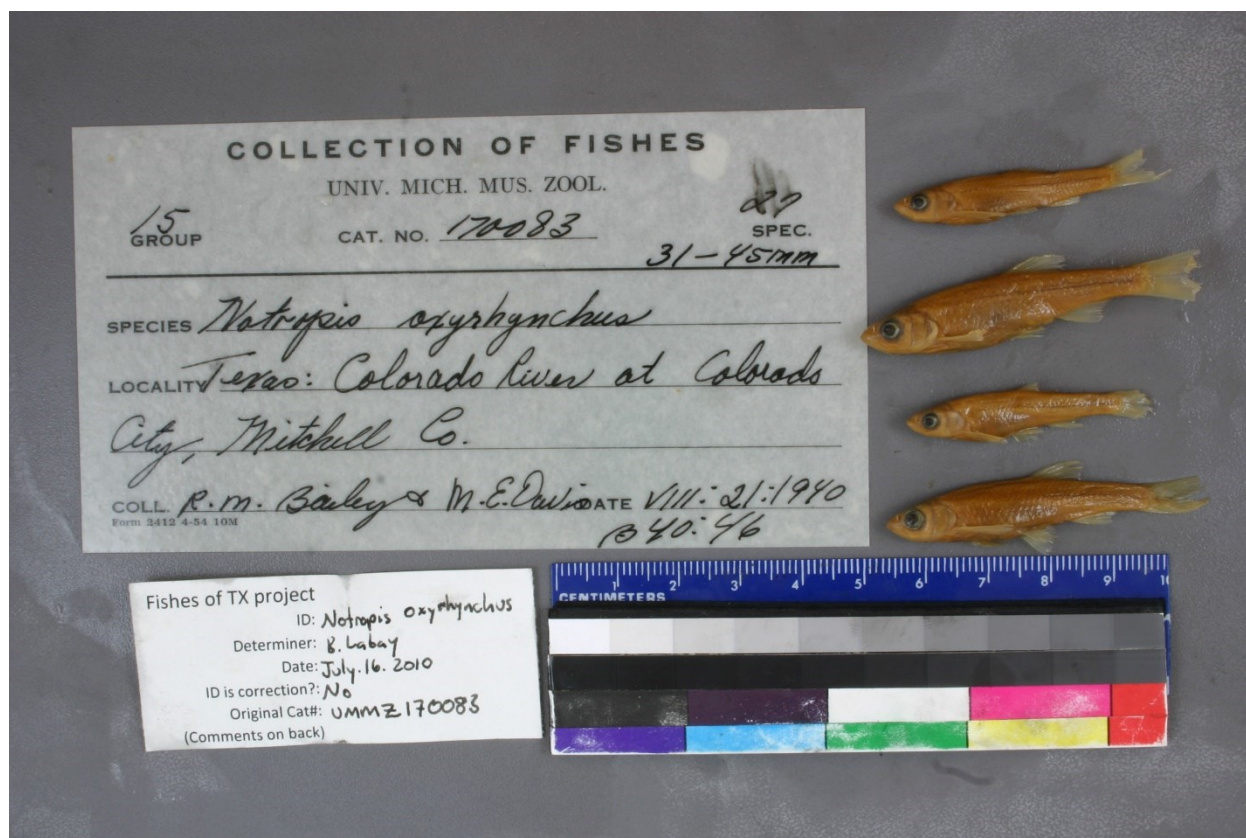 COLLECTION OF FISHES
UNIV. MICH. MUS. ZOOL.
15
GROUP CAT. NO. 170083 SPEC.
31-45mm
SPECIES Notropis oxyrhynchus
LOCALITY Texas: Colorado River at Colorado
City, Mitchell Co.
COLL. R.M. Bailey & M.E. Davis DATE VIII:21:1940
Form 2412 4-54 10M
B40:46
Fishes of TX project
ID: Notropis oxyrhynchus
Determiner: B. Labay
Date: July.16.2010
ID is correction?: No
Original Cat#: UMMZ170083
(Comments on back)
1 2 3 4 5 6 7 8 9 10
CENTIMETERS